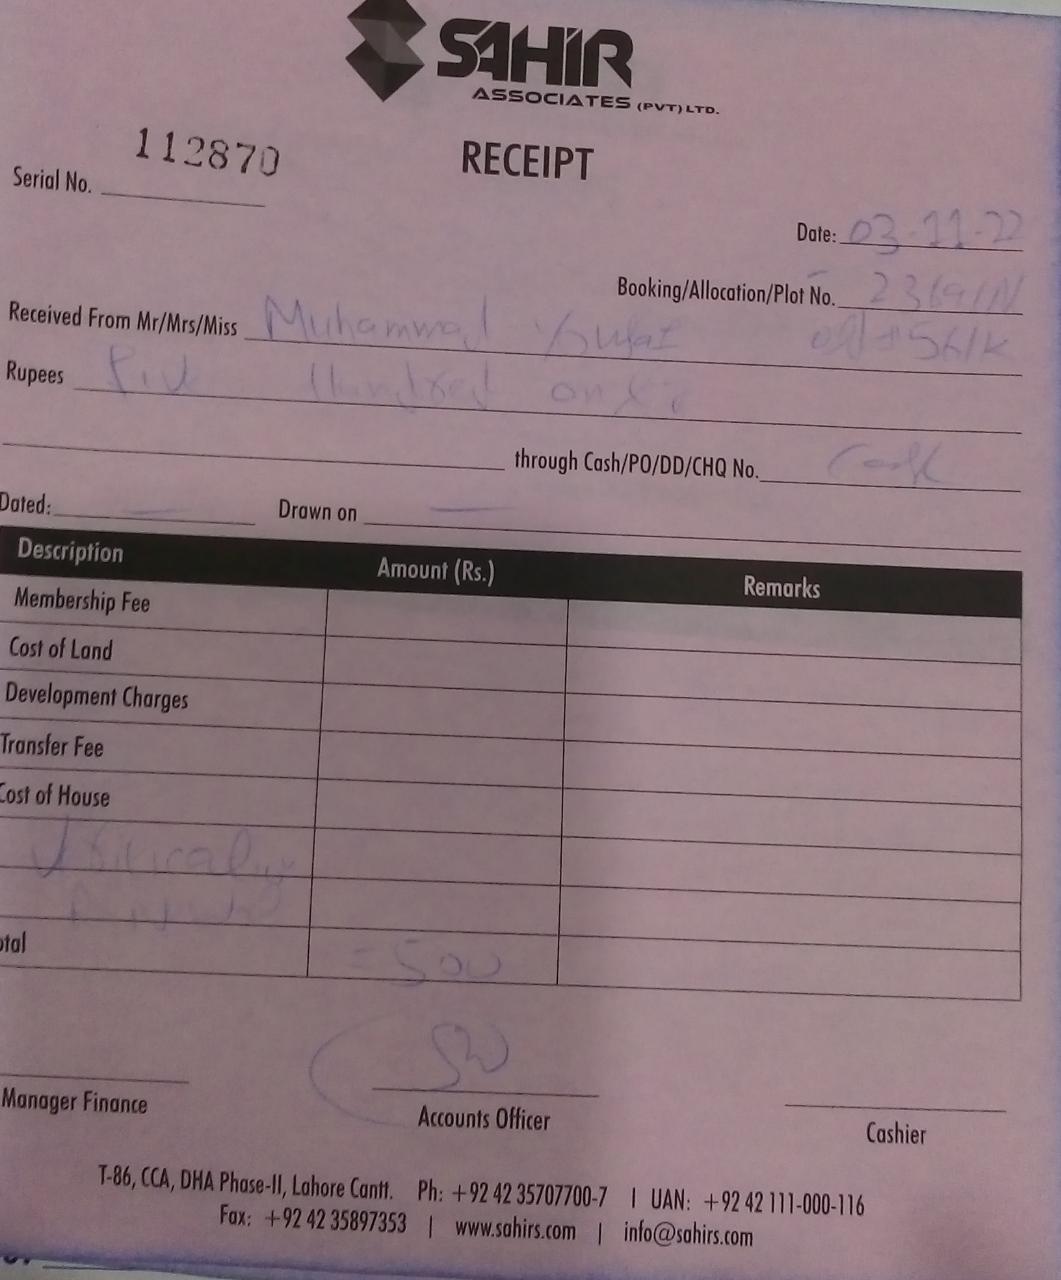 SAHIR
ASSOCIATES (PVT) LTD.
112870
RECEIPT
Serial No.
Date: 03-11-22
Booking/Allocation/Plot No.
Received From Mr/Mrs/Miss Muhammad
Rupees Hundred only
through Cash/PO/DD/CHQ No. Cash
Dated: — Drawn on —
Description Amount (Rs.) Remarks
Membership Fee
Cost of Land
Development Charges
Transfer Fee
Cost of House
otal = 500
Manager Finance Accounts Officer Cashier
T-86, CCA, DHA Phase-II, Lahore Cantt. Ph: +92 42 35707700-7 | UAN: +92 42 111-000-116
Fax: +92 42 35897353 | www.sahirs.com | info@sahirs.com